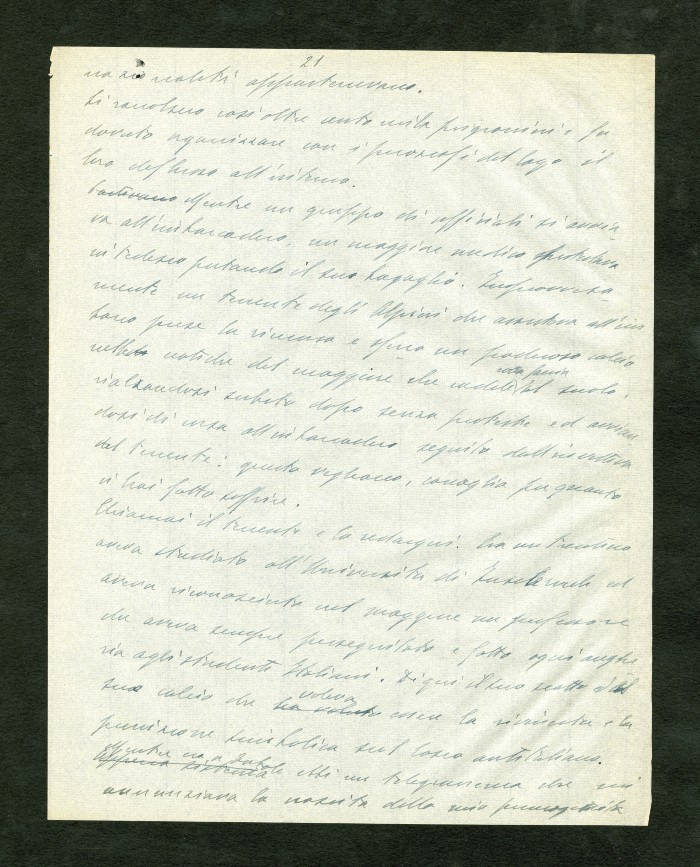 21
nazionalità appartenevano.
Si raccolsero così oltre cento mila prigionieri e fu
dovuto organizzare con i piroscafi del lago il
loro deflusso all'interno.
Mentre un gruppo di ufficiali si avvia-
va all'imbarcadero, un maggiore medico
in tedesco portando il suo bagaglio. Improvvisa-
mente un tenente degli Alpini che assisteva all'im
barco prese la rincorsa e sferrò un poderoso calcio
nelle natiche del maggiore che cadde al suolo,
rialzandosi subito dopo senza proteste ed avvian
dosi di corsa all'imbarcadero seguito dall'invettiva
del tenente: questo vigliacco, canaglia per quanto
ci hai fatto soffrire.
Chiamai il tenente e lo redarguii. Era un trentino
aveva studiato all'Università di Innsbruck ed
aveva riconosciuto nel maggiore un professore
che aveva sempre perseguitato e fatto ogni anghe
ria agli studenti Italiani. Di qui il suo scatto ed il
suo calcio che voleva essere la rivincita e la
punizione simbolica sul losco antitaliano.
Mentre ero a Salò ebbi un telegramma che mi
annunziava la nascita della mia primogenita